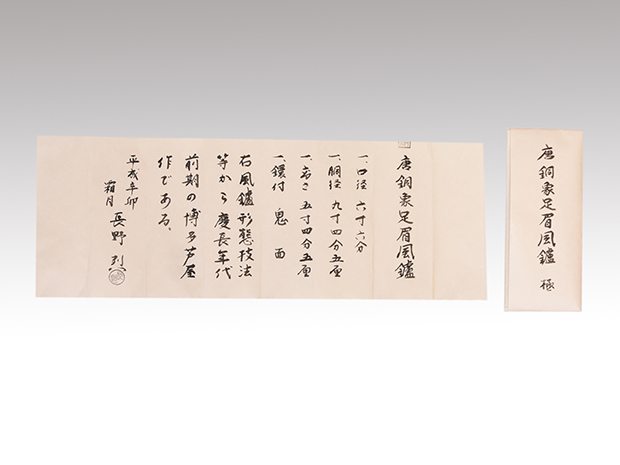 唐銅象足眉風鑪 極
唐銅象足眉風鑪
一、口径 六寸六分
一、胴径 九寸四分五厘
一、高さ 五寸四分五厘
一、鐶付 鬼面
右風鑪形態技法
等から慶長年代
前期の博多芦屋
作である、
平成辛卯
霜月 長野 烈